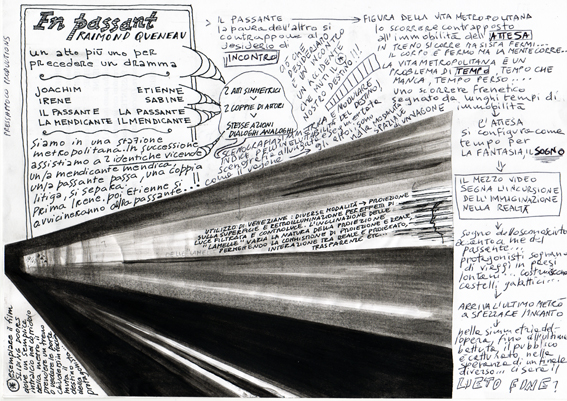 En passant
RAIMOND QUENEAU
un atto più uno per
precedere un dramma
JOACHIM ETIENNE
IRENE SABINE
IL PASSANTE LA PASSANTE
LA MENDICANTE IL MENDICANTE
Siamo in una stazione
metropolitana. In successione
assistiamo a 2 identiche vicende
un/a mendicante mendica,
un/a passante passa, una coppia
litiga, si separa.
Prima Irene, poi Etienne si
avvicineranno alla passante...!!
2 ATTI SIMMETRICI
2 COPPIE DI ATTORI
STESSE AZIONI
DIALOGHI ANALOGHI
> IL PASSANTE
la paura dell'altro si
contrappone al
desiderio di
INCONTRO
→ FIGURA DELLA VITA METROPOLITANA
lo scorrere contrapposto
all'immobilità dell'ATTESA
IN TRENO SI CORRE MA SI STA FERMI...
IL CORPO È FERMO MA LA MENTE CORRE..
LA VITA METROPOLITANA È UN
PROBLEMA DI TEMPO, TEMPO CHE
MANCA, TEMPO PERSO...
uno scorrere frenetico
segnato da lunghi tempi di
immobilità
L'ATTESA
si configura come
tempo per
LA FANTASIA IL SOGNO
IL MEZZO VIDEO
SEGNA L'INCURSIONE
DELL'IMMAGINAZIONE
NELLA REALTÀ
sogno dello sconosciuto
accanto a me del
passante...
protagonisti sognano
di viaggi in paesi
lontani... costruiscono
castelli galattici...
ARRIVA L'ULTIMO METRÒ
A SPEZZARE L'INCANTO
nella simmetria dell'
opera, fino all'ultima
battuta il pubblico
è catturato, nella
speranza di un finale
diverso... ci sarà il
LIETO FINE?
UTILIZZO DI VENEZIANE: DIVERSE MODALITÀ → PROIEZIONE
SULLA SUPERFICIE E RETROILLUMINAZIONE PER EFFETTI DI
LUCE FILTRATA E CONTROLUCE. L'INCLINAZIONE DELLE
"LAMELLE" VARIA LA NATURA DELLA PROIEZIONE
PERMETTENDO LA COMMISTIONE DI PROIEZIONE E REALE,
INTERAZIONE TRA REALE E PROIETTATO,
TRASPARENZE ETC...
* esemplare il film
SLIDING DOORS